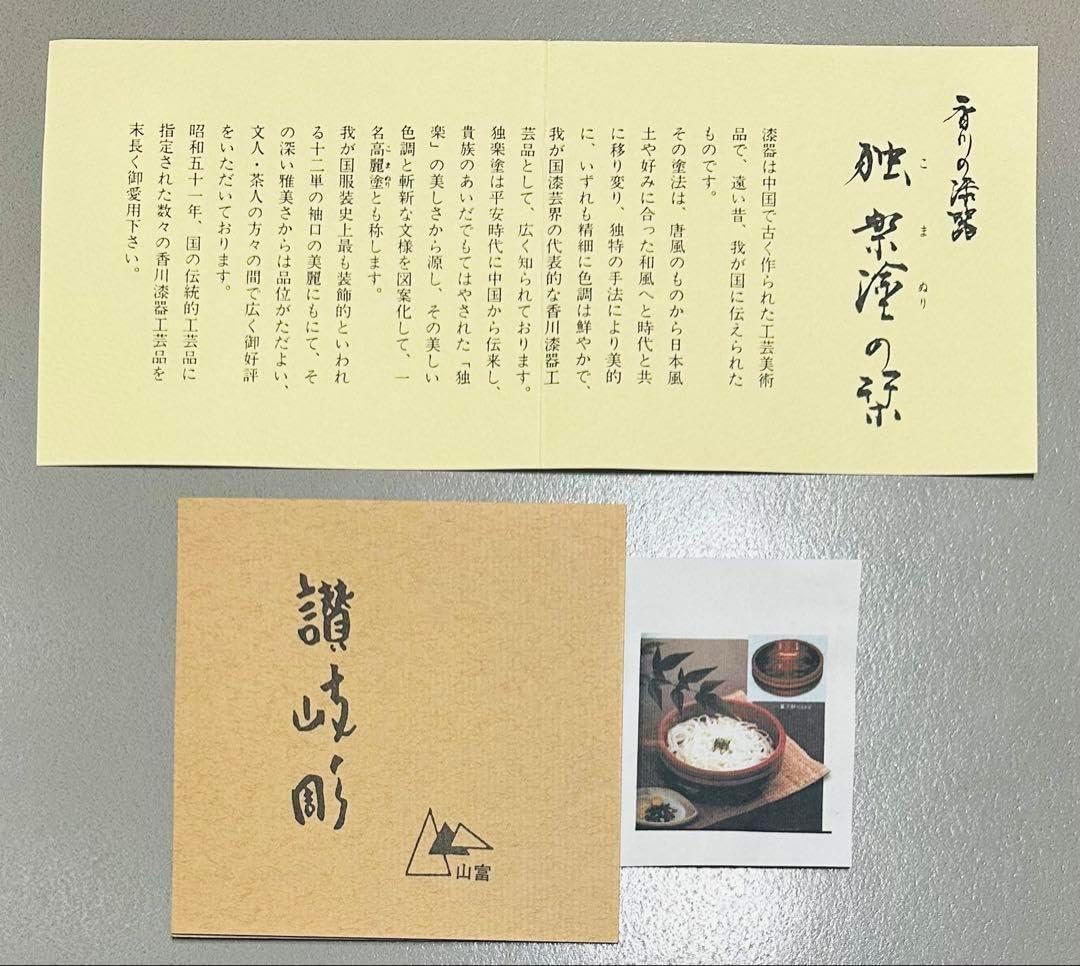 香川の漆器
独楽塗の栞
こま ぬり
漆器は中国で古く作られた工芸美術
品で、遠い昔、我が国に伝えられた
ものです。
その塗法は、唐風のものから日本風
土や好みに合った和風へと時代と共
に移り変り、独特の手法により美的
に、いずれも精細に色調は鮮やかで、
我が国漆芸界の代表的な香川漆器工
芸品として、広く知られております。
独楽塗は平安時代に中国から伝来し、
貴族のあいだでもてはやされた「独
楽」の美しさから源し、その美しい
色調と斬新な文様を図案化して、一
名高麗塗とも称します。
こまぬり
我が国服装史上最も装飾的といわれ
る十二単の袖口の美麗にもにて、そ
の深い雅美さからは品位がただよい、
文人・茶人の方々の間で広く御好評
をいただいております。
昭和五十一年、国の伝統的工芸品に
指定された数々の香川漆器工芸品を
末長く御愛用下さい。
讃岐彫
山富